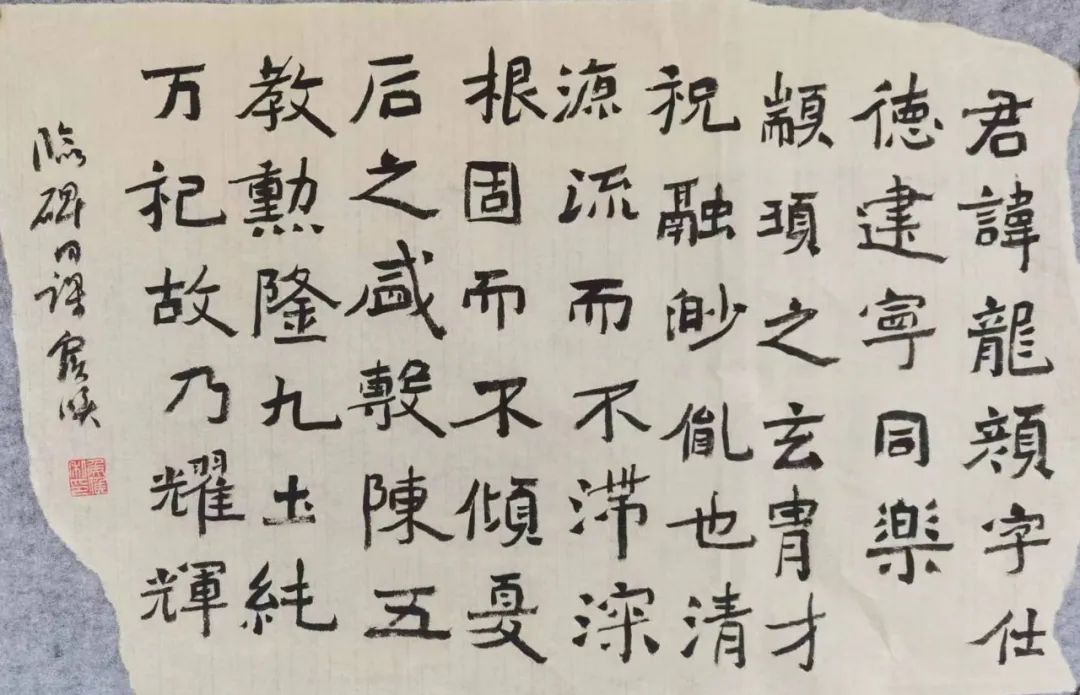 君諱龍顔字仕
徳建寧同樂
顓頊之玄胄才
祝融渺胤也清
源流而不滯深
根固而不傾夏
后之盛敷陳五
教勲隆九土純
万祀故乃耀輝
臨碑日課